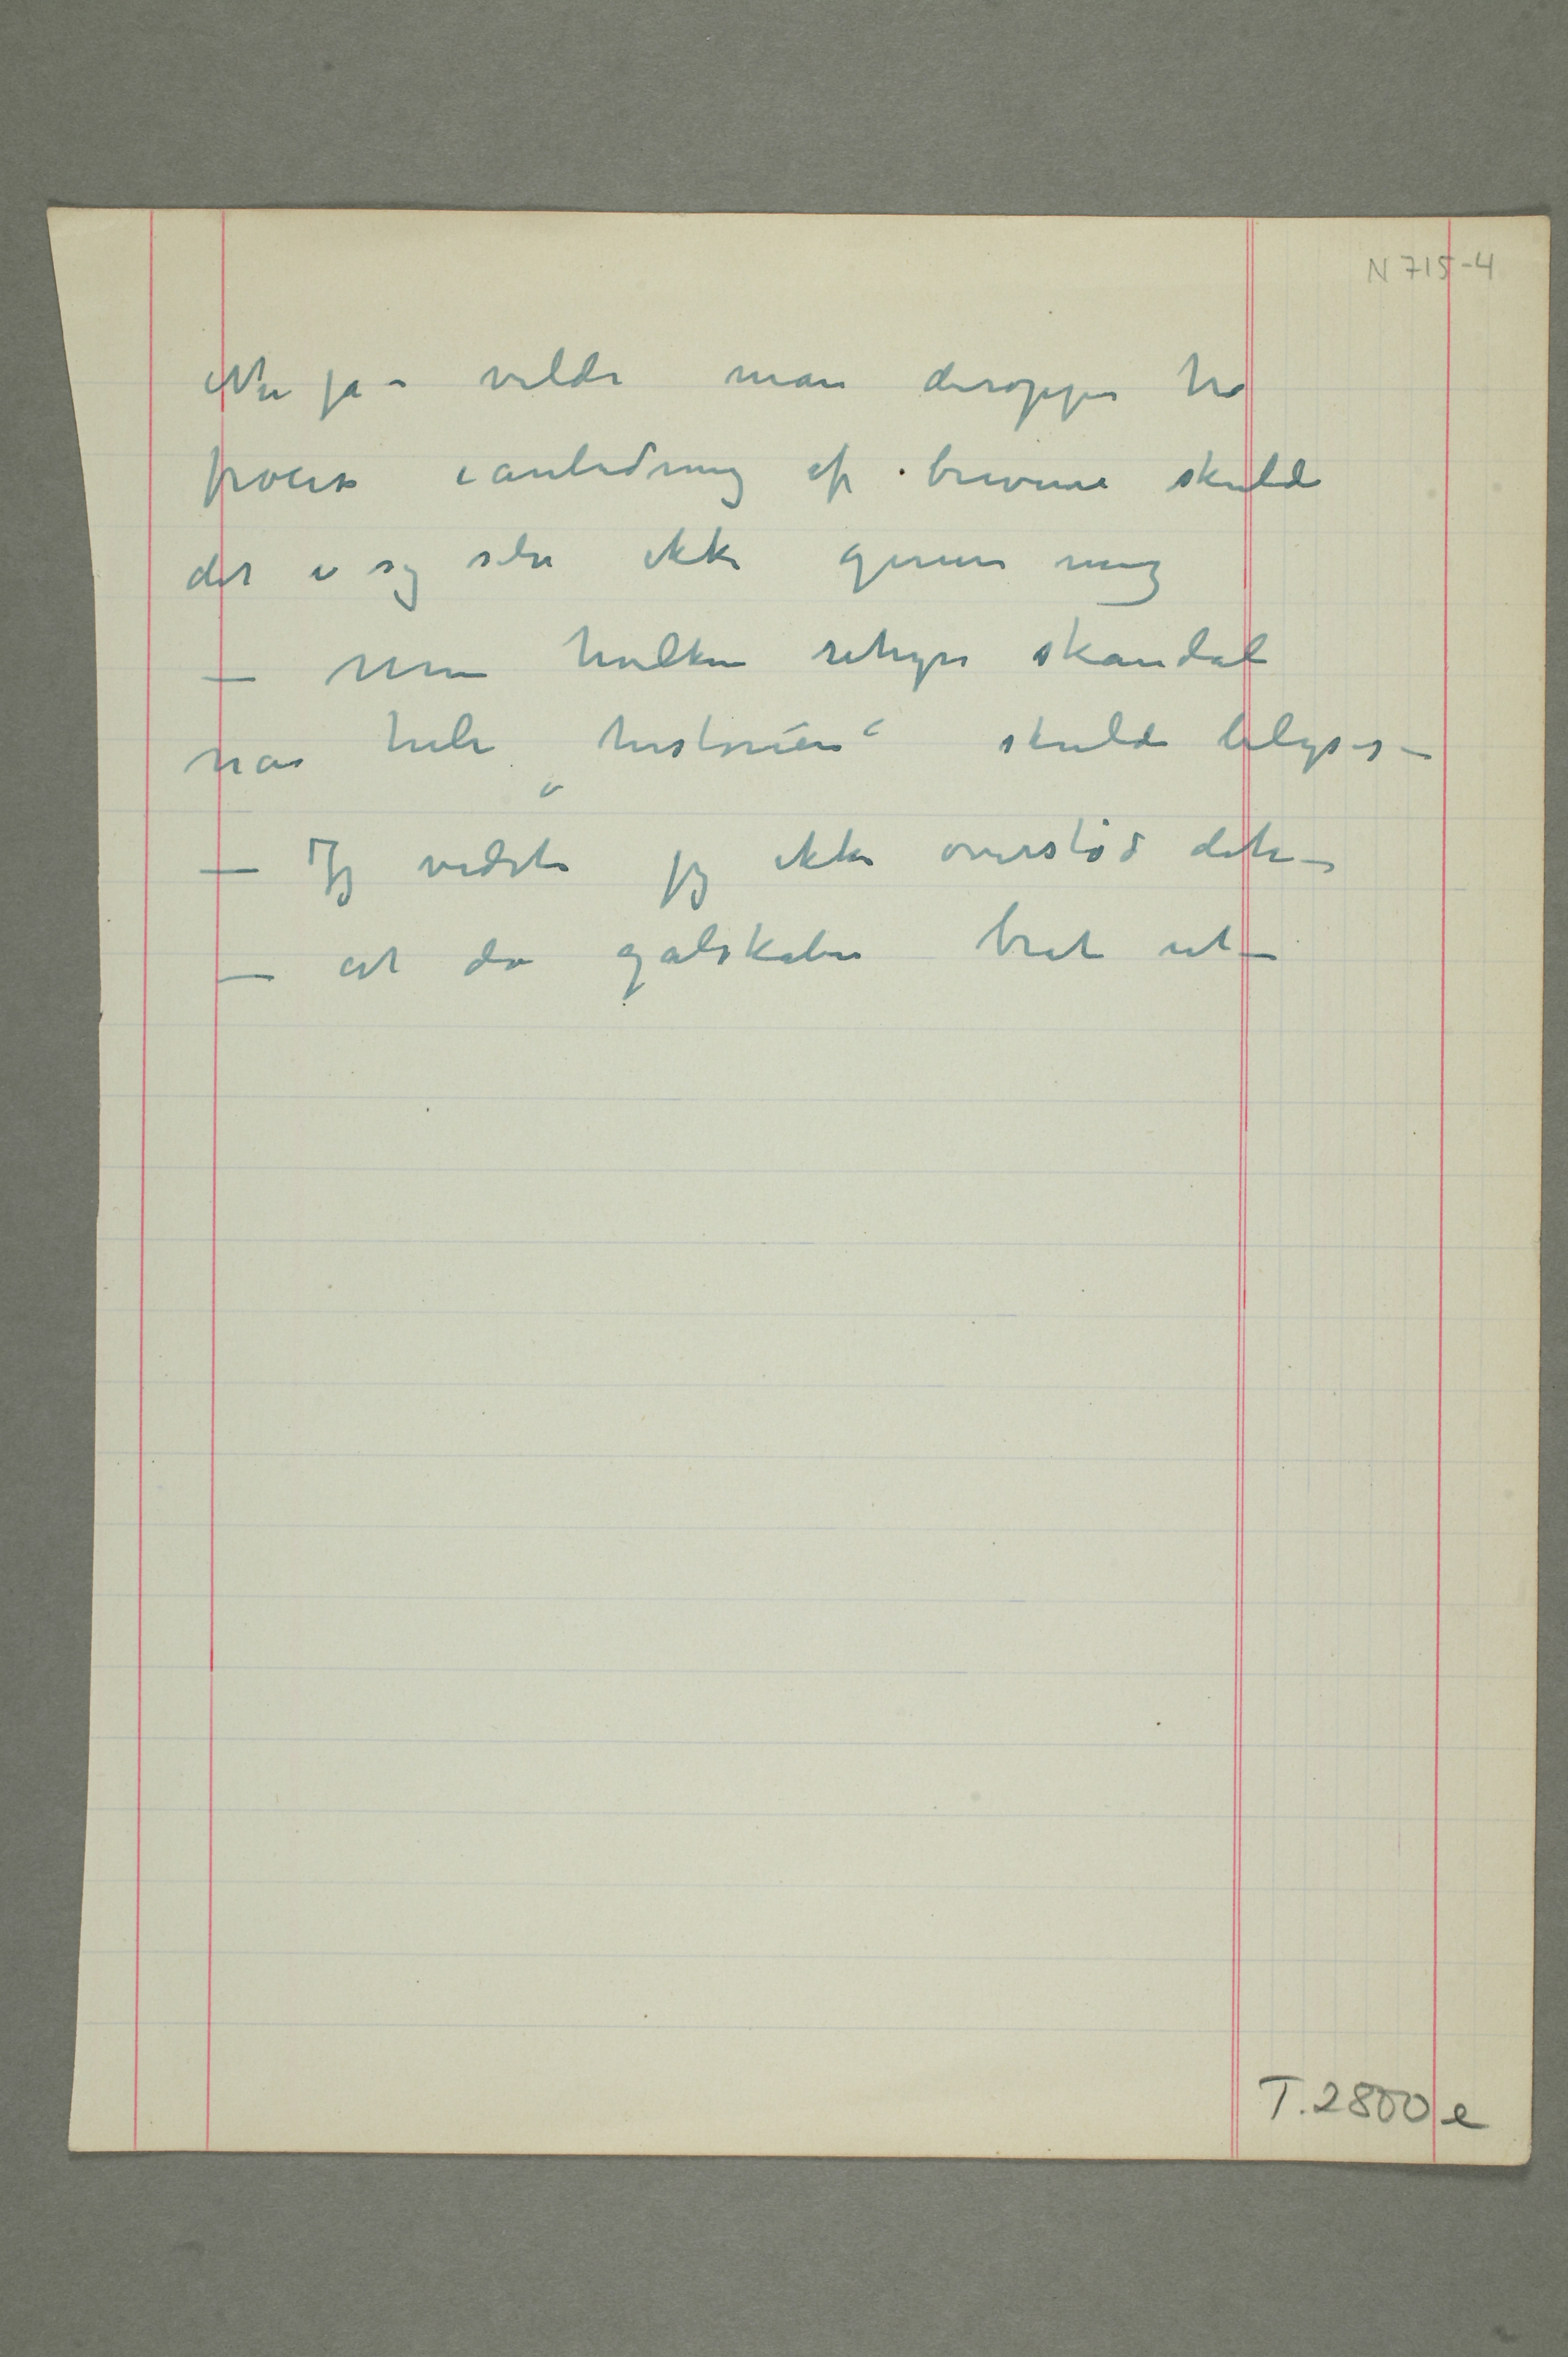 N 715-4
Nu ja – vilde man deroppe ha
proces i anledning af brevene skulde
det i sig selv ikke genere mig
– Men hvilken uhyre skandal
når hele „historien“ skulde belyses –
– Jeg vidste jeg ikke overstod dette –
– at da galskaben brøt ut –
T. 2800 e